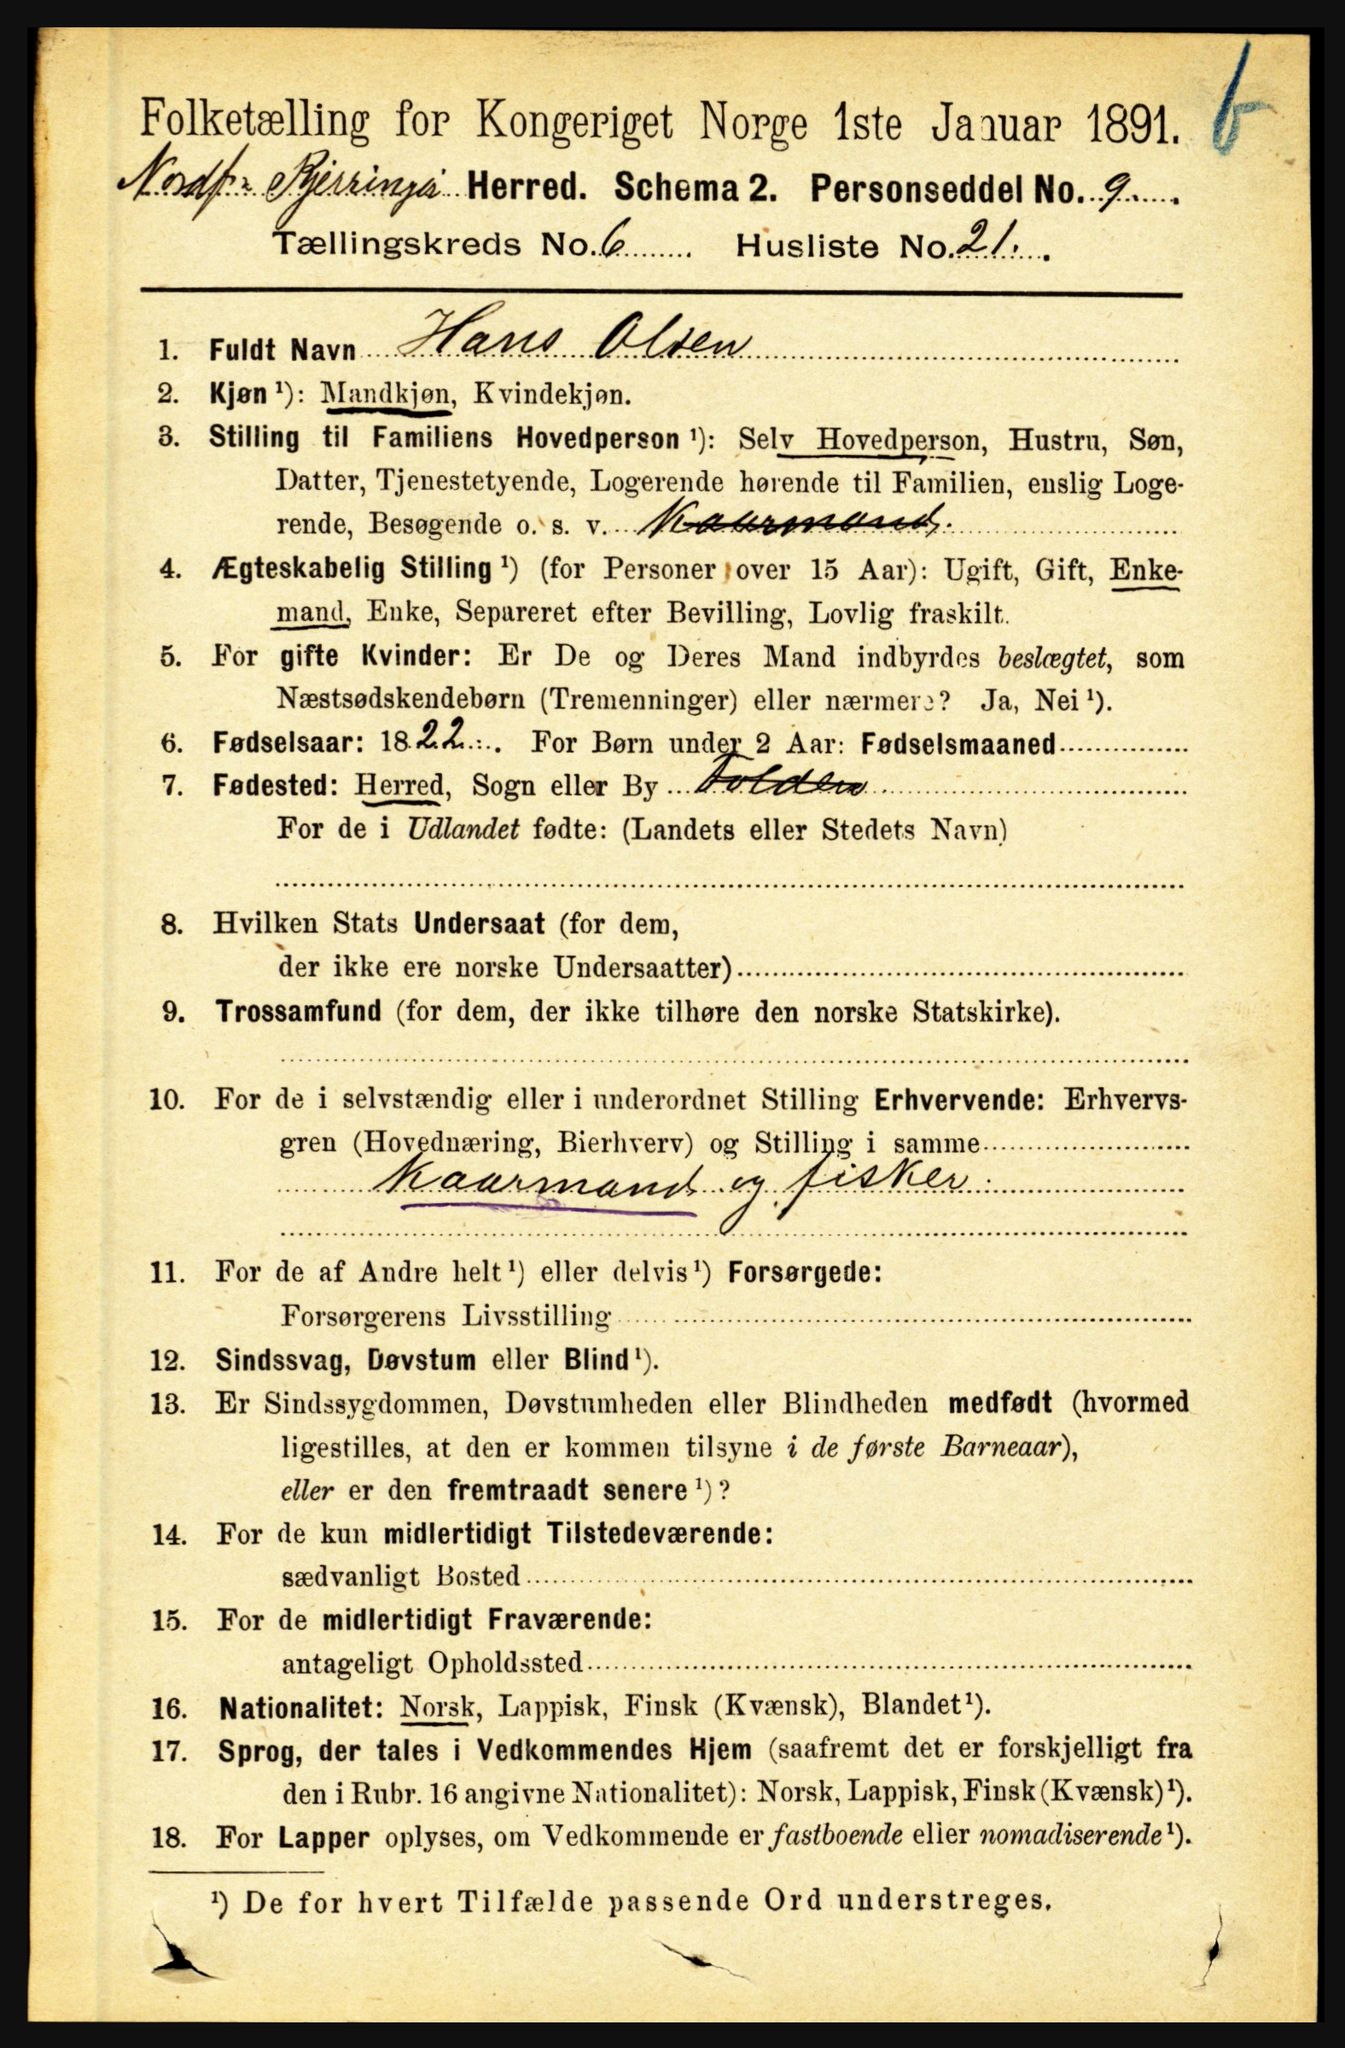 b
Folketælling for Kongeriget Norge 1ste Januar 1891.
Nordf. Kjerringø Herred. Schema 2. Personseddel No. 9.
Tællingskreds No. 6 Husliste No. 21.
1. Fuldt Navn Hans Olsen
2. Kjøn ¹): Mandkjøn, Kvindekjøn.
3. Stilling til Familiens Hovedperson ¹): Selv Hovedperson, Hustru, Søn,
Datter, Tjenestetyende, Logerende hørende til Familien, enslig Loge-
rende, Besøgende o. s. v. Kaarmand.
4. Ægteskabelig Stilling ¹) (for Personer over 15 Aar): Ugift, Gift, Enke-
mand, Enke, Separeret efter Bevilling, Lovlig fraskilt.
5. For gifte Kvinder: Er De og Deres Mand indbyrdes beslægtet, som
Næstsødskendebørn (Tremenninger) eller nærmere? Ja, Nei ¹).
6. Fødselsaar: 1822. For Børn under 2 Aar: Fødselsmaaned
7. Fødested: Herred, Sogn eller By Folden
For de i Udlandet fødte: (Landets eller Stedets Navn)
8. Hvilken Stats Undersaat (for dem,
der ikke ere norske Undersaatter)
9. Trossamfund (for dem, der ikke tilhøre den norske Statskirke).
10. For de i selvstændig eller i underordnet Stilling Erhvervende: Erhvervs-
gren (Hovednæring, Bierhverv) og Stilling i samme
Kaarmand og fisker.
11. For de af Andre helt ¹) eller delvis ¹) Forsørgede:
Forsørgerens Livsstilling
12. Sindssvag, Døvstum eller Blind ¹).
13. Er Sindssygdommen, Døvstumheden eller Blindheden medfødt (hvormed
ligestilles, at den er kommen tilsyne i de første Barneaar),
eller er den fremtraadt senere ¹)?
14. For de kun midlertidigt Tilstedeværende:
sædvanligt Bosted
15. For de midlertidigt Fraværende:
antageligt Opholdssted
16. Nationalitet: Norsk, Lappisk, Finsk (Kvænsk), Blandet ¹).
17. Sprog, der tales i Vedkommendes Hjem (saafremt det er forskjelligt fra
den i Rubr. 16 angivne Nationalitet): Norsk, Lappisk, Finsk (Kvænsk) ¹).
18. For Lapper oplyses, om Vedkommende er fastboende eller nomadiserende ¹).
¹) De for hvert Tilfælde passende Ord understreges.